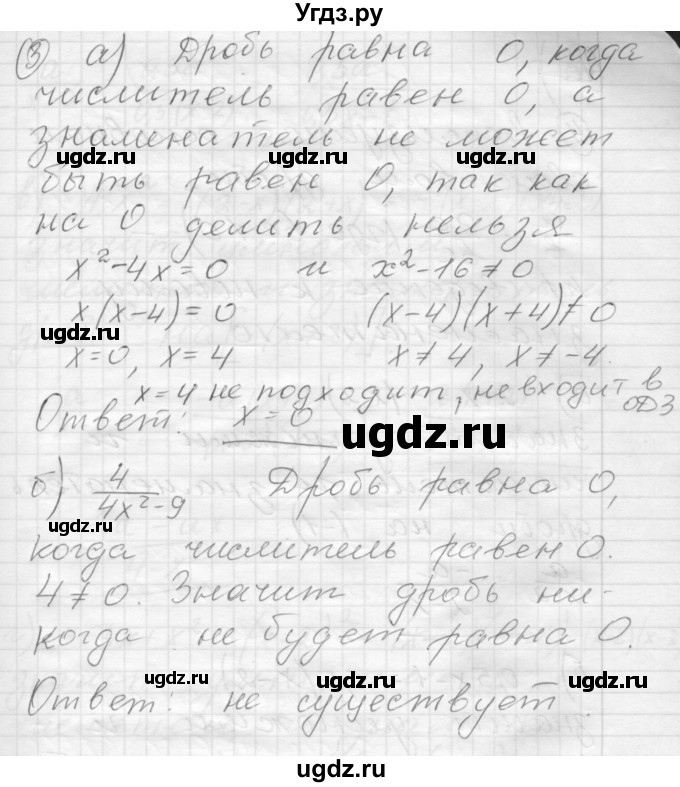 Угдз.ру
③ а) Дробь равна 0, когда
числитель равен 0, а
знаменатель не может
ugdz.ru ugdz.ru ugdz.ru
быть равен 0, так как
на 0 делить нельзя
x²-4x=0 и x²-16≠0
x(x-4)=0 (x-4)(x+4)≠0
ugdz.ru
x=0, x=4 x≠4, x≠-4.
x=4 не подходит, не входит в ОДЗ
Ответ: x=0
ugdz.ru
б) 4/4x²-9 Дробь равна 0,
ugdz.ru
когда числитель равен 0.
4≠0. Значит дробь ни-
когда не будет равна 0.
ugdz.ru ugdz.ru ugdz.ru
Ответ: не существует.
ugdz.ru